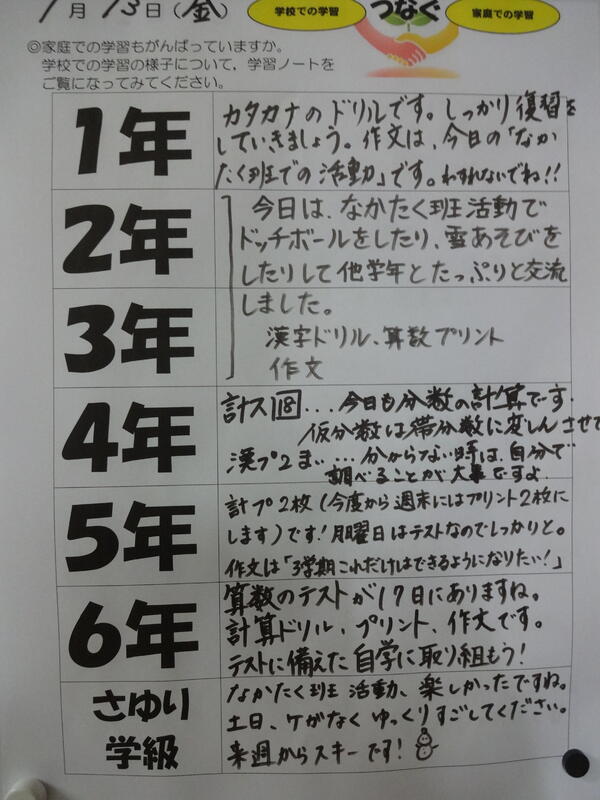 1月13日(金)
学校での学習
つなぐ
家庭での学習
◎家庭での学習もがんばっていますか。
学校での学習の様子について、学習ノートを
ご覧になってみてください。
1年
カタカナのドリルです。しっかり復習を
していきましょう。作文は、今日の「なか
たく班での活動」です。わすれないでね!!
2年
3年
今日は、なかたく班活動で
ドッチボールをしたり、雪あそびを
したりして他学年とたっぷりと交流
しました。
漢字ドリル、算数プリント
作文
4年
計ス18...今日も分数の計算でーす.
仮分数は帯分数に変しんさせて
漢プ2まい...分からない時は、自分で
調べることが大事ですよ.
5年
計プ2枚(今度から週末にはプリント2枚に
します)です!月曜日はテストなのでしっかりと。
作文は「3学期これだけはできるようになりたい!」
6年
算数のテストが17日にありますね。
計算ドリル、プリント、作文です。
テストに備えた自学に取り組もう!
さゆり
学級
なかたく班活動、楽しかったですね。
土日、ケがなくゆっくりすごしてください。
来週からスキーです!